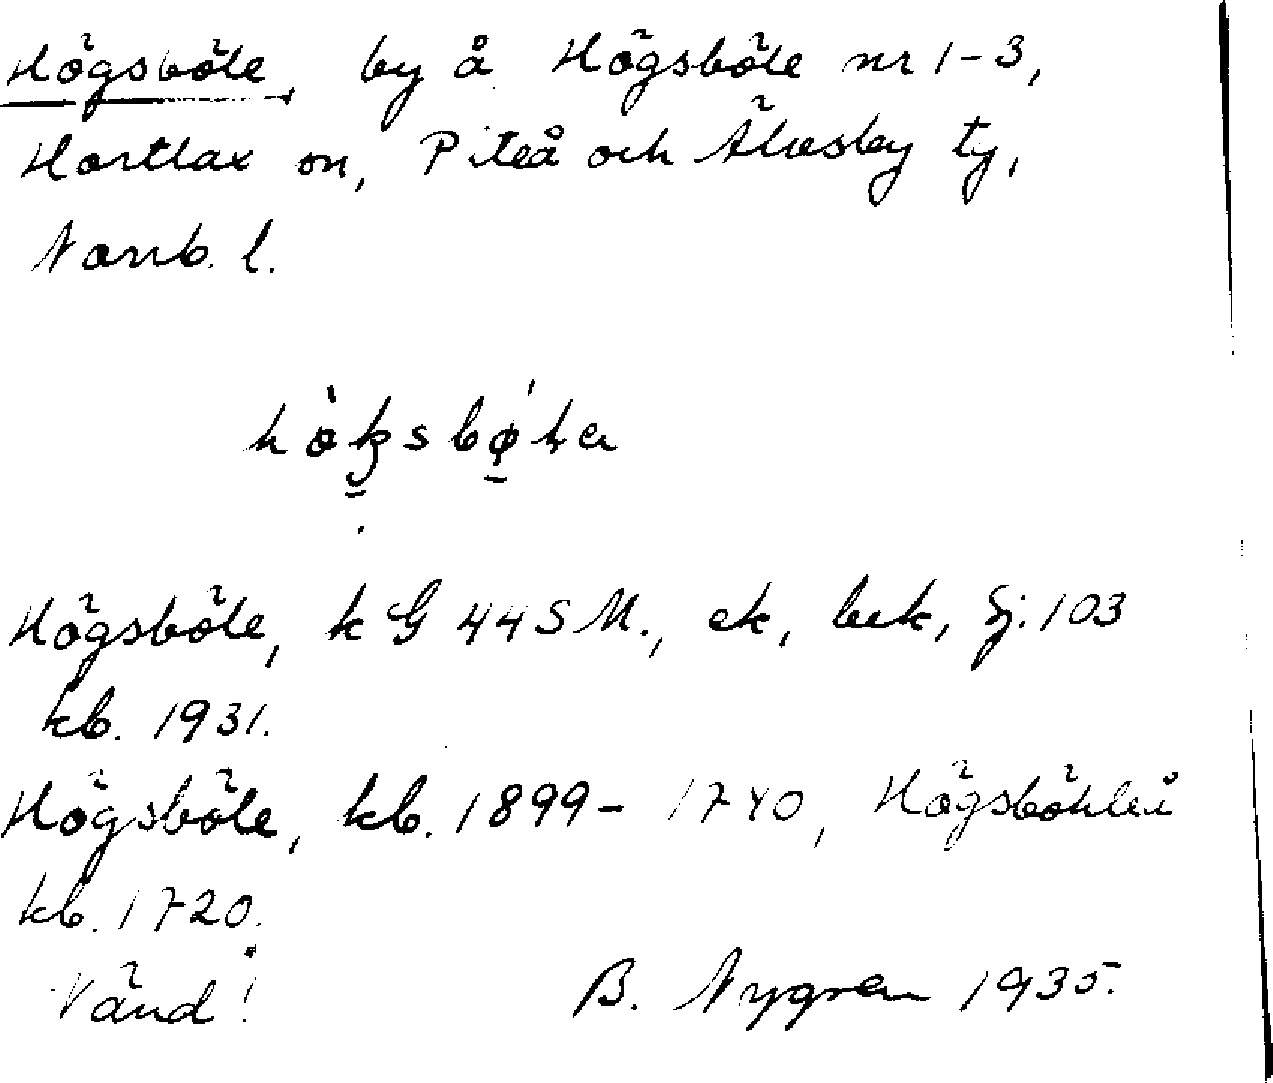 Högsböle, by å Högsböle nr 1-3,
Hortlax sn, Piteå och Älvsby tg,
Norrb. l.
Högsböle, k G 44 S M., ek, bek, Sj. 103
kb. 1931.
Högsböle, kb. 1899- 1740, Högsböhleå
kb. 1720.
Vänd!
B. Nygren 1935.